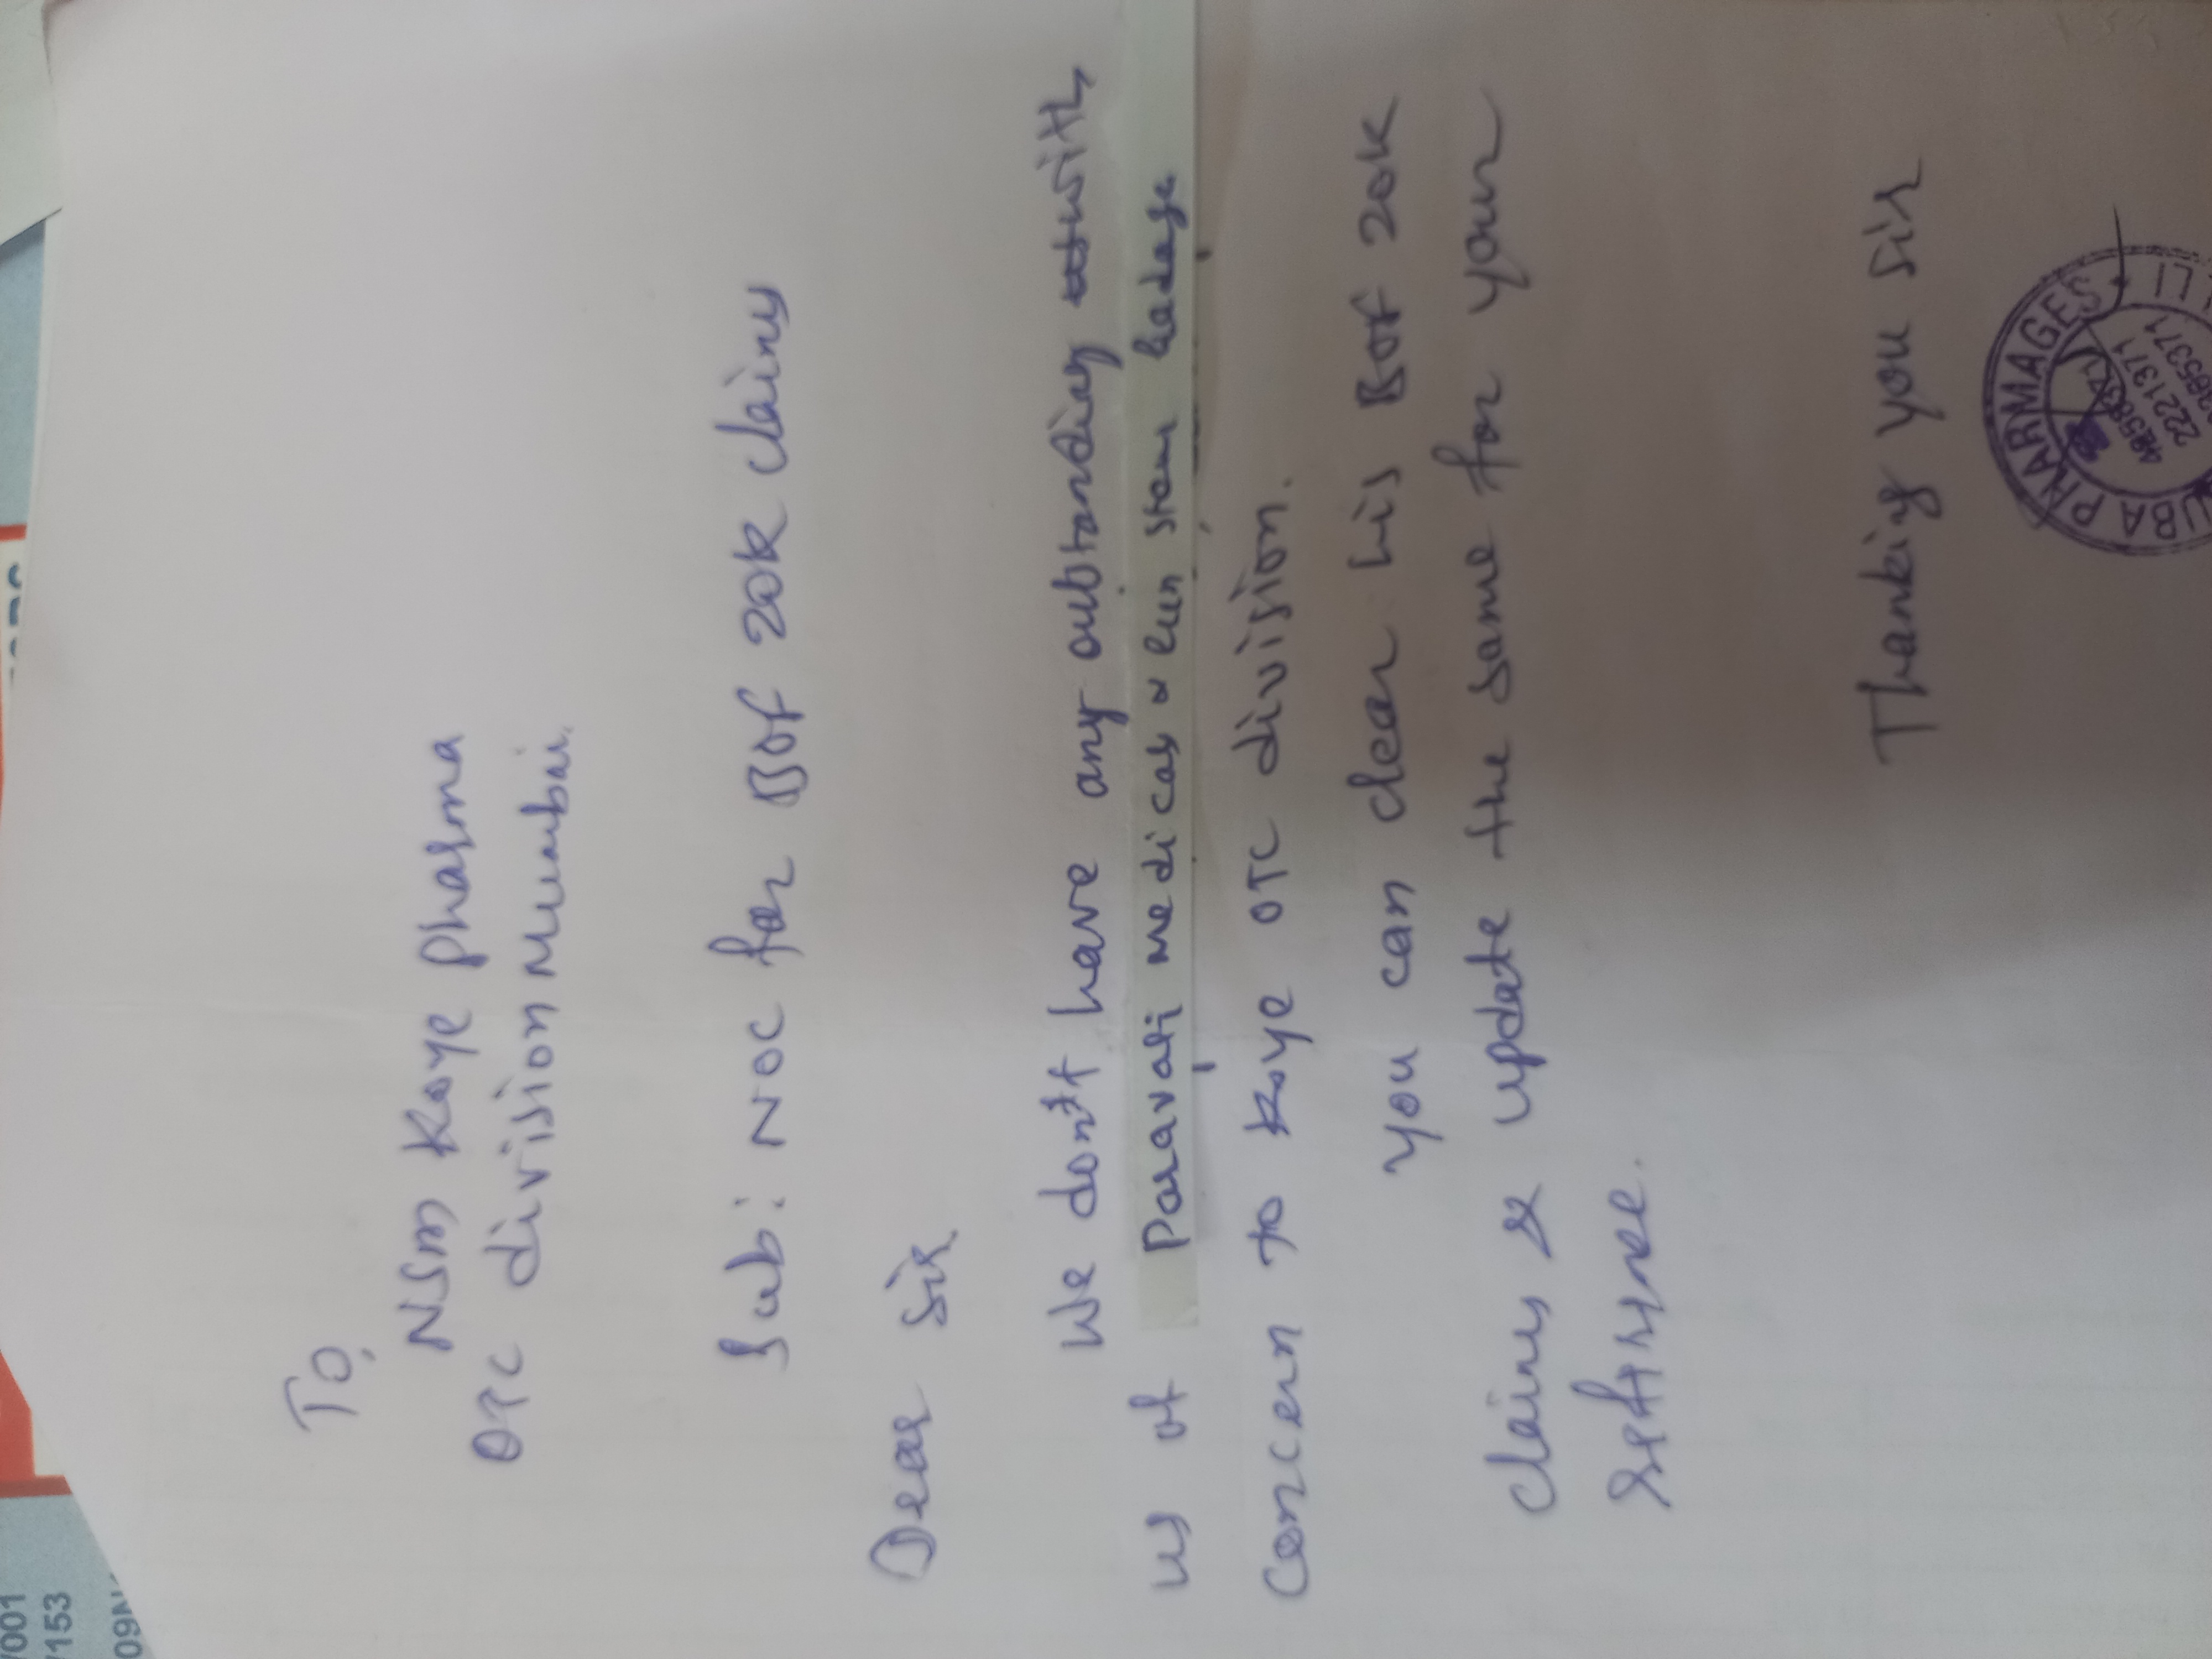 To,
NSM Koye pharma
OTC division Mumbai.
Sub: NOC for BOF 20K Claims
Dear Sir,
We don't have any outstanding with
us of Paravati medicas & Eun Star
Concern to Koye OTC division.
you can clear his BOF 20K
claims & update the same for your
Thanking you sir
PHARMAGES
2221371
001
153